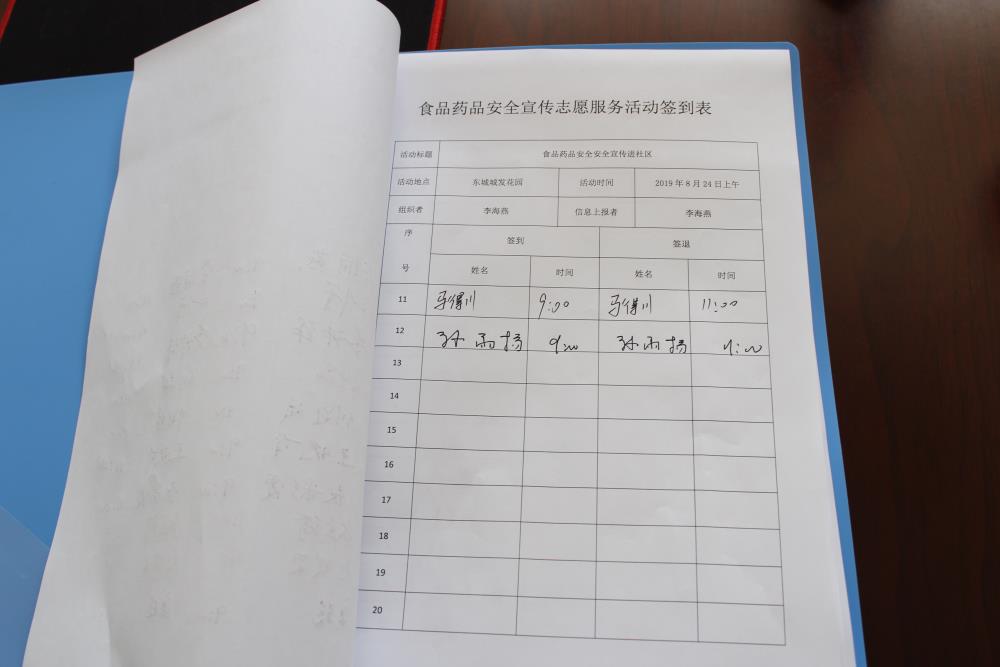 食品药品安全宣传志愿服务活动签到表
活动标题 食品药品安全安全宣传进社区
活动地点 东城城发花园 活动时间 2019年8月24日上午
组织者 李海燕 信息上报者 李海燕
序号 签到 签退
姓名 时间 姓名 时间
11 马得川 9:00 马得川 11:00
12 孙雨扬 9:00 孙雨扬
13
14
15
16
17
18
19
20